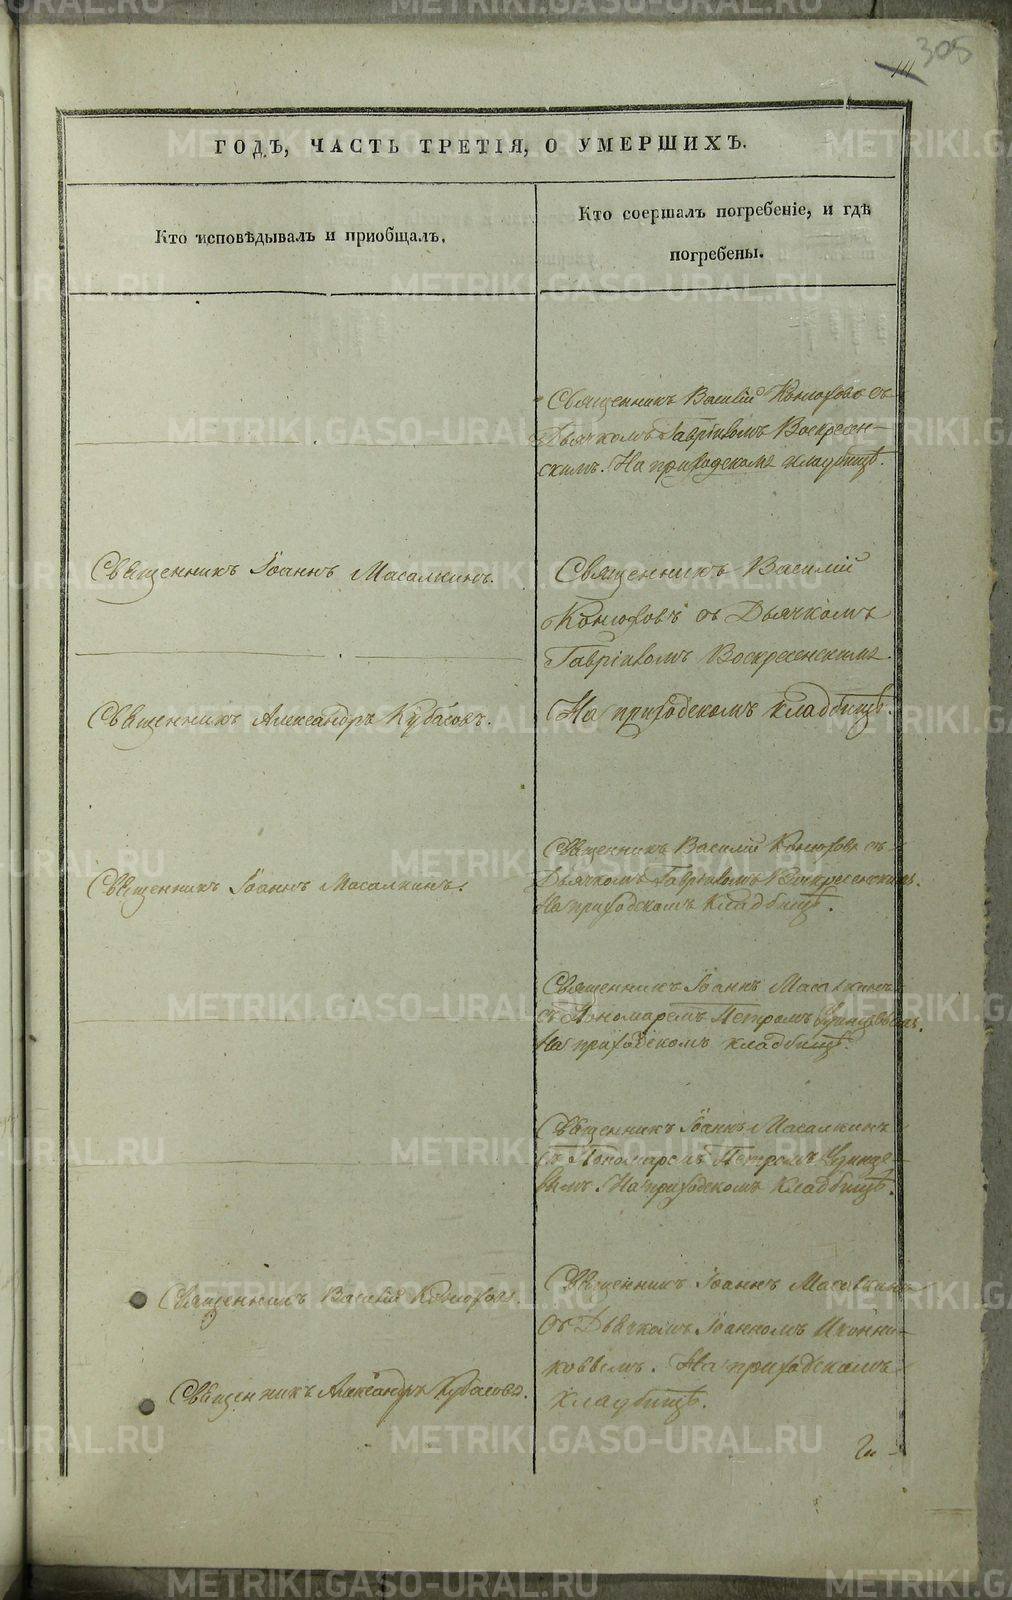 305
ГОДЪ, ЧАСТЬ ТРЕТІЯ, О УМЕРШИХЪ.
Кто исповѣдывалъ и приобщалъ.
Кто соершалъ погребеніе, и гдѣ
погребены.
Священникъ Василій Конюховъ съ
Дьячкомъ Гавріиломъ Воскресен-
скимъ. На приходскомъ кладбищѣ.
Священникъ Іоаннъ Масалкинъ.
Священникъ Василій
Конюховъ съ Дьячкомъ
Гавріиломъ Воскресенскимъ.
Священникъ Александръ Кубасовъ.
На приходскомъ кладбищѣ.
Священникъ Василій Конюховъ съ
Священникъ Іоаннъ Масалкинъ.
Дьячкомъ Гавріиломъ Воскресенскимъ.
На приходскомъ кладбищѣ.
Священникъ Іоаннъ Масалкинъ
съ Пономаремъ Петромъ
На приходскомъ кладбищѣ.
Священникъ Іоаннъ Масалкинъ
съ Пономаремъ Петромъ
вымъ. На приходскомъ кладбищѣ.
Священникъ Василій Конюховъ
Священникъ Іоаннъ Масалкинъ
съ Дьячкомъ Іоанномъ Иконни-
ковымъ. На приходскомъ
Священникъ Александръ Кубасовъ.
кладбищѣ.
METRIKI.GASO-URAL.RU